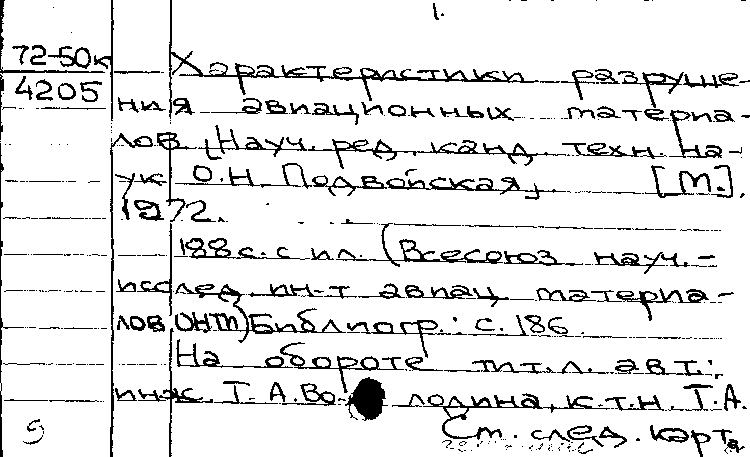 1.
72-50к
4205
Характеристики разруше-
ния авиационных материа-
лов [Науч. ред. канд. техн. на-
ук О.Н. Подвойская]. [М.],
1972.
188 с. с ил. (Всесоюз. науч.-
исслед. ин-т авиац. материа-
лов, ОНТИ) Библиогр.: с. 186.
На обороте тит. л. авт.:
инж. Т.А. Во- лодина, к.т.н. Т.А.
См. след. карт.
9